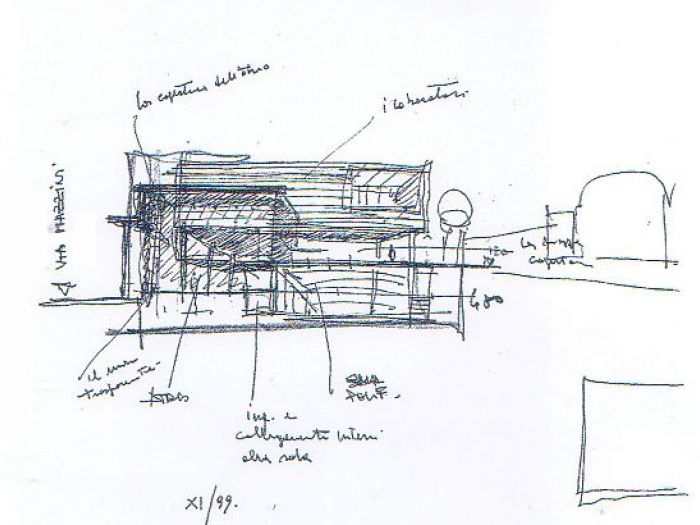 la copertura dell'atrio
i laboratori
VIA MAZZINI
la
480
il muro
trasparente
ATRIO
SALA
POLIF.
ing. e
collegamenti interni
alla sala
XI/99.